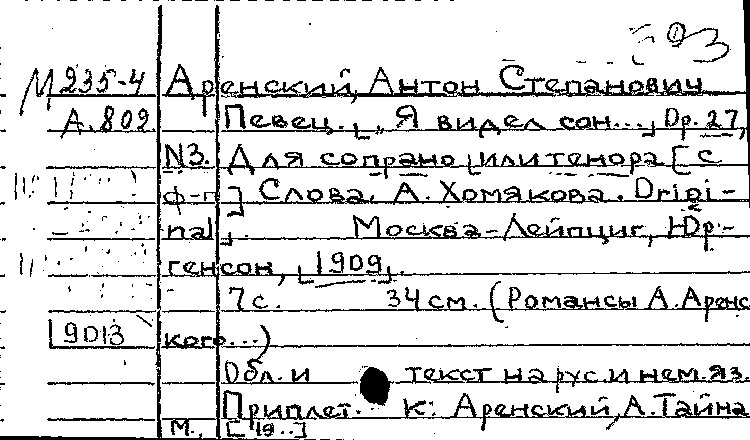 93
М 235-4 Аренский, Антон Степанович
А.809 Певец. [„Я видел сон...„] Op. 27,
N3. Для сопрано [или тенора [с
ф-п] Слова. А. Хомякова. Origi-
nal]. Москва-Лейпциг, Юр-
генсон, [1909].
7 с. 34 см. (Романсы А.Аренс
9013 кого...)
Обл. и текст на рус. и нем. яз.
Приплет. к: Аренский, А. Тайна
М., [19..]